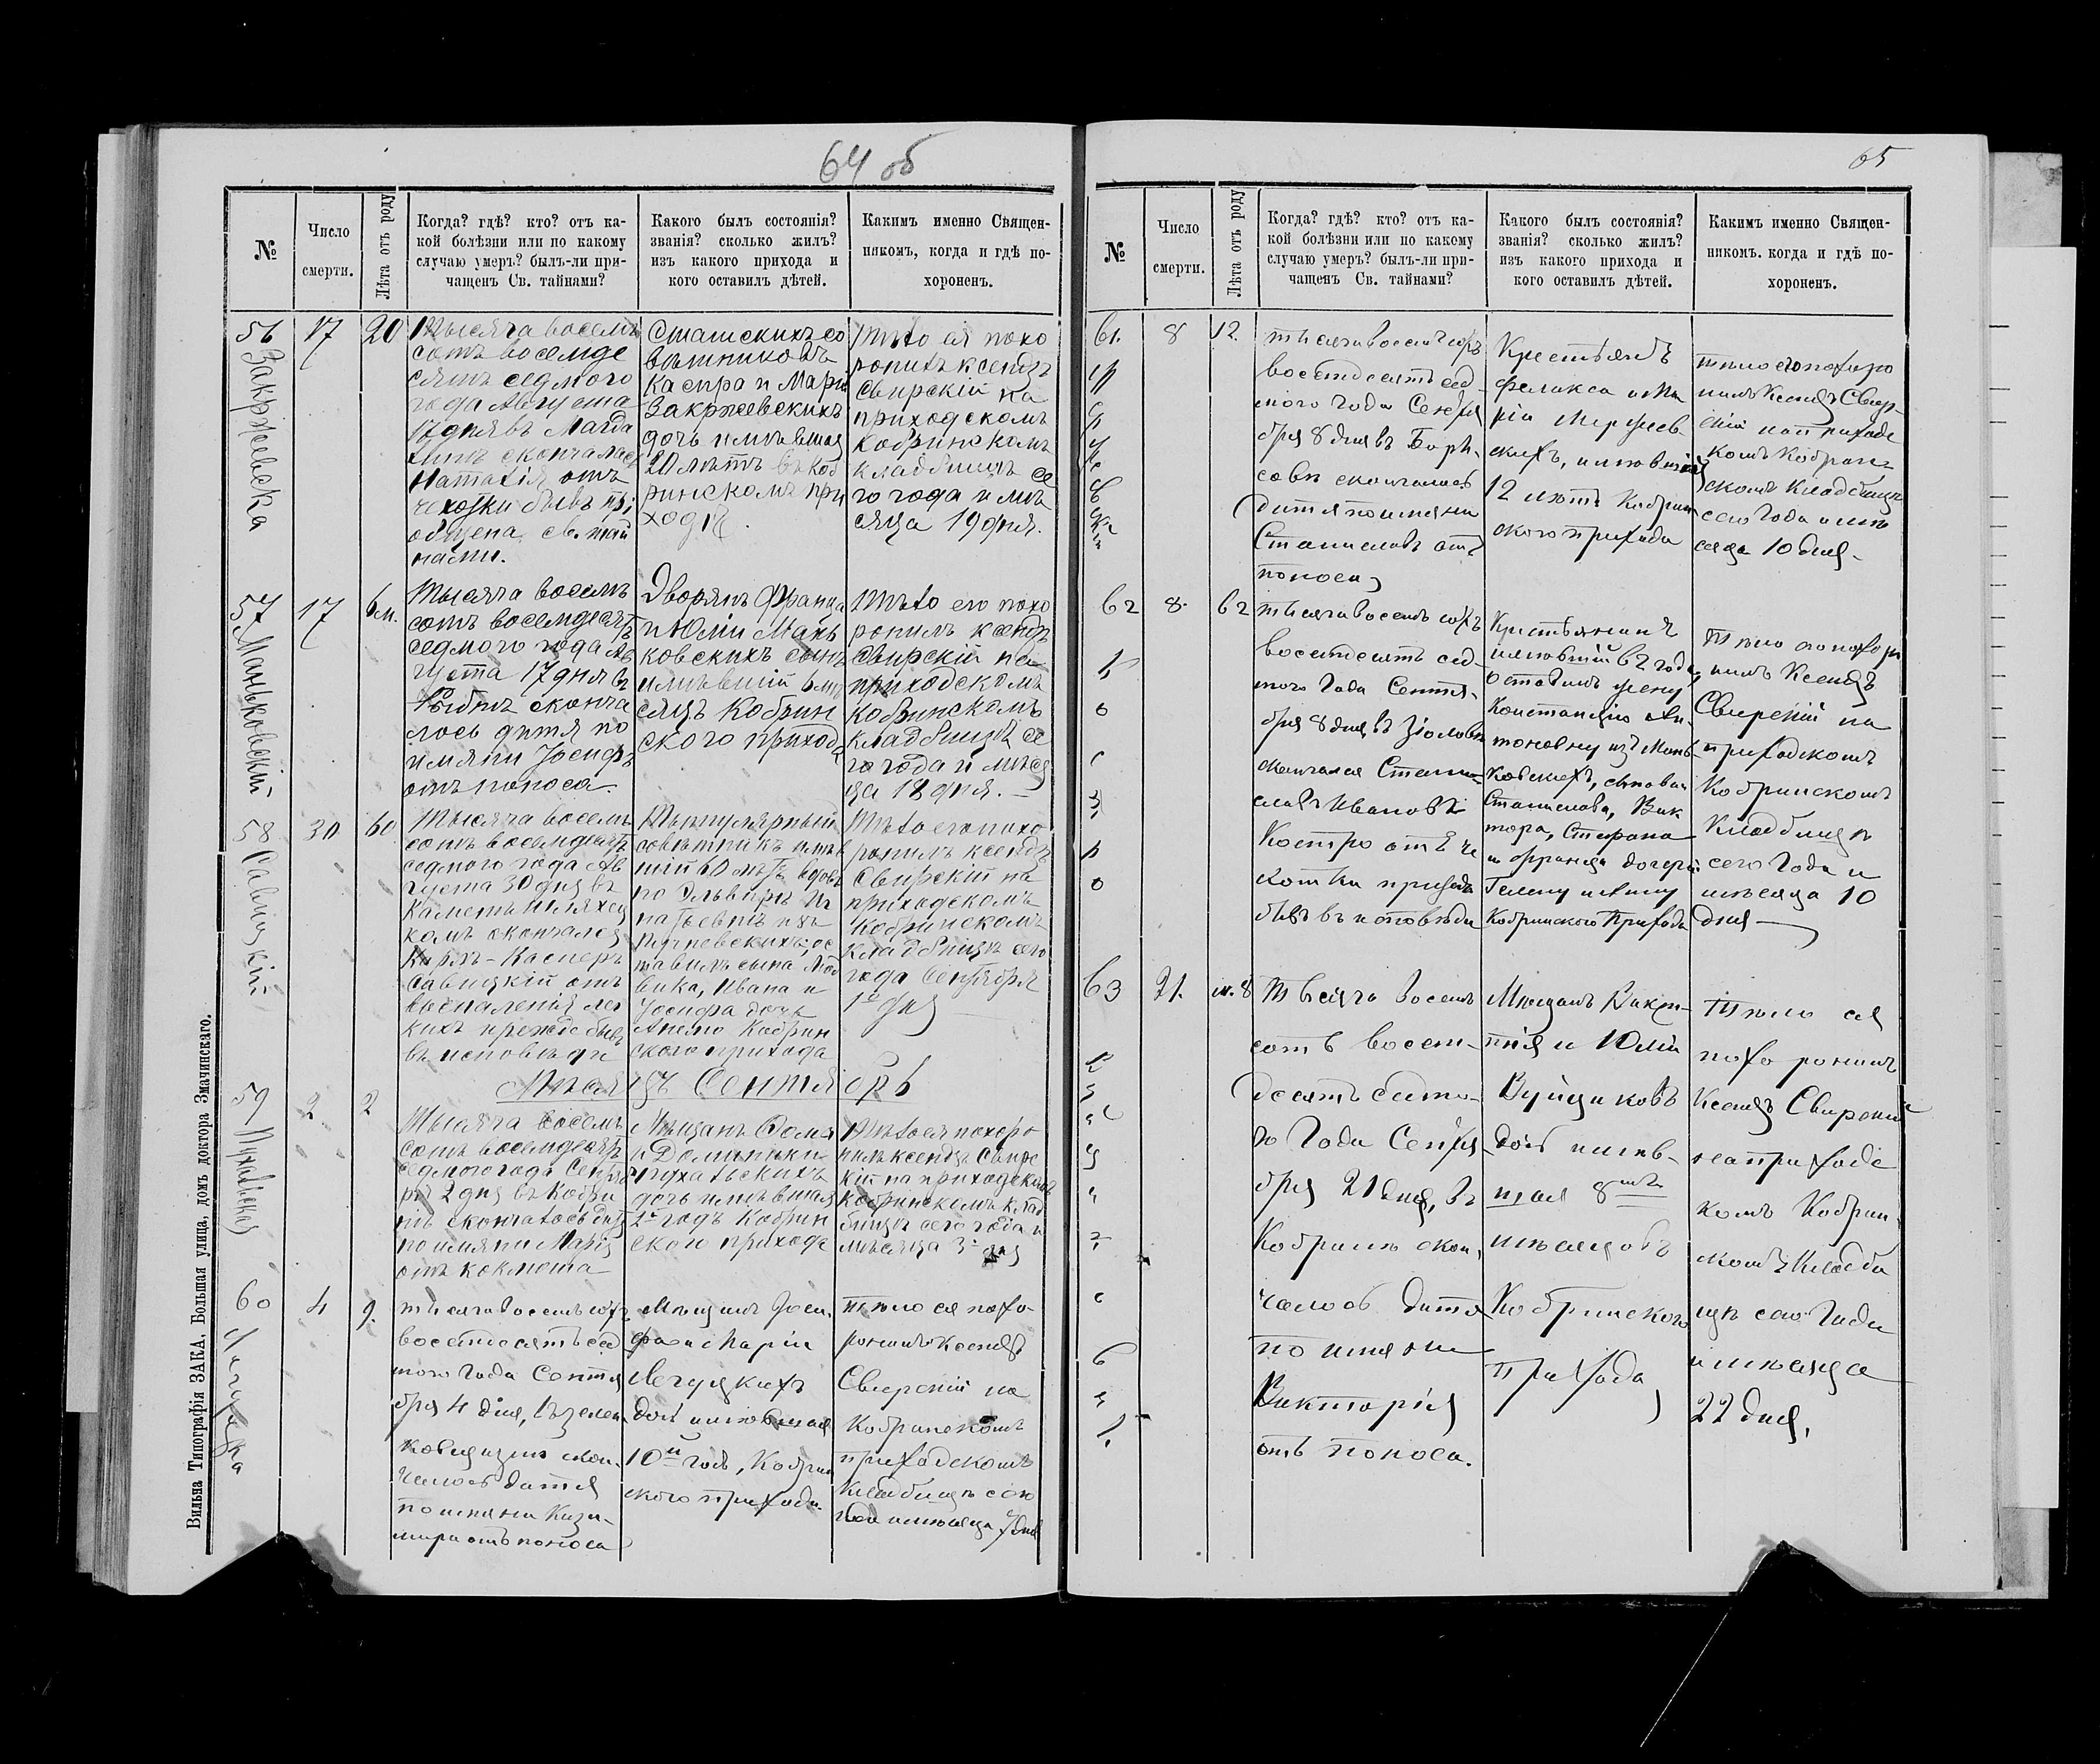 64 об
№
Число
смерти.
Лѣта отъ роду
Когда? гдѣ? кто? отъ ка-
кой болѣзни или по какому
случаю умеръ? былъ-ли при-
чащенъ Св. тайнами?
Какого былъ состоянія?
званія? сколько жилъ?
изъ какого прихода и
кого оставилъ дѣтей.
Какимъ именно Священ-
никомъ, когда и гдѣ по-
хороненъ.
56
Закржевска
17
20
Тысяча восемь
сотъ восемьде
сятъ седмого
года Августа
17 дня въ Магда
скончалась
Наталія отъ
чехотки бывъ прі
общена св. тай
нами.
Статскихъ со
вѣтниковъ
Каспра и Мари
Закржевскихъ
дочь имѣвшая
20 лѣтъ въ Коб
ринскомъ при
ходѣ.
Тѣло ея похо
ронилъ ксендзъ
Свирскій на
приходскомъ
Кобринскомъ
кладбищѣ се
го года и мѣ
сяца 19 дня.
57
Маньковскій
17
6 м.
Тысяча восемь
сотъ восемдесятъ
седмого года Ав
густа 17 дня въ
сконча
лось дитя по
имяни Іосифъ
отъ поноса.
Дворянъ Франца
и Юліи Мань
ковскихъ сынъ
имѣвшій 6 мѣ
сяцъ Кобрин
ского прихода
Тѣло его похо
ронилъ ксендзъ
Свирскій на
приходскомъ
Кобринскомъ
кладбищѣ се
го года и мѣся
ца 18 дня.
58
Савицкій
30
60
Тысяча восемь
сотъ восемдесятъ
седмого года Ав
густа 30 дня въ
скончался
Карлъ-Касперъ
Савицкій отъ
воспаленія лег
кихъ прежде бывъ
въ исповѣди
Титулярный
совѣтникъ имѣв
шій 60 лѣтъ вдовъ
по Эльвирѣ
изъ
ос
тавилъ сына Люд
вика, Ивана и
Іосифа дочь
Анелю Кобрин
ского прихода
Тѣло его похо
ронилъ ксендзъ
Свирскій на
приходскомъ
Кобринскомъ
кладбищѣ сего
года Сентября
1го дня
Мѣсяцъ Сентябрь
59
2
2
Тысяча восемь
сотъ восемдесятъ
седмого года Сентяб
ря 2 дня въ Кобри
нѣ скончалось дитя
по имяни Марія
отъ коклюша
Мѣщанъ Фомы
и Доминики
Пухальскихъ
дочь имѣвшая
2й годъ Кобрин
ского прихода
Тѣло ея похоро
нилъ ксендзъ Свирс
кій на приходскомъ
Кобринскомъ клад
бищѣ сего года и
мѣсяца 3го дня
60
4
9.
тысяча восемь сотъ
восемдесятъ сед
мого года Сентя
бря 4 дня, въ
скон-
чалось дитя
по имяни Кази-
мира отъ поноса
Мѣщанъ Іоси-
фа и Маріи
дочь имѣвшая
10й годъ, Кобрин
ского прихода.
тѣло ея похо-
ронилъ Ксендзъ
Свирскій на
Кобринскомъ
приходскомъ
Кладбищѣ сего
года и мѣсяца дня
Вильна Типографія ЗАКА. Большая улица, домъ доктора Змачинскаго.
65
№
Число
смерти.
Лѣта отъ роду
Когда? гдѣ? кто? отъ ка-
кой болѣзни или по какому
случаю умеръ? былъ-ли при-
чащенъ Св. тайнами?
Какого былъ состоянія?
званія? сколько жилъ?
изъ какого прихода и
кого оставилъ дѣтей.
Какимъ именно Священ-
никомъ. когда и гдѣ по-
хороненъ.
61.
8
12.
тысяча восемь сотъ
восемдесятъ сед-
мого года Сентя
бря 8 дня въ Бори-
совѣ скончалось
дитя по имяни
Станиславъ отъ
поноса
Крестьянъ
Феликса и Ма
ріи
скихъ, имѣвшій
12 лѣтъ Кобрин
ского прихода
тѣло его похоро
нилъ Ксендзъ Свир-
скій на приходс
комъ Кобрин-
скомъ Кладбищѣ
сего года и мѣ
сяца 10 дня
62
Костро
8.
62
тысяча восемь сотъ
восемдесятъ сед-
мого года Сентя-
бря 8 дня въ
скончался Стани-
славъ Ивановъ
Костро отъ че
хотки прежде
бывъ въ исповѣди
Крестьянинъ
имѣвшій 62 года
оставилъ жену
Констанцію Ан-
тоновну изъ Мань
ковскихъ, сыновей
Станислава, Вик
тора, Стефана
и Франца дочерей
Гелену и Анну
Кобринского Прихода
Тѣло его похоро
нилъ Ксендзъ
Свирскій на
приходскомъ
Кобринскомъ
Кладбищѣ
сего года и
мѣсяца 10
дня
63
21.
м. 8
Тысяча восемь
сотъ восем-
десятъ седмо-
го года Сентя
бря 21 дня, въ
Кобринѣ скон-
чалось дитя
по имяни
Викторія
отъ поноса.
Мѣщанъ Викен-
тія и Юліи
дочь имѣв-
шая 8мь
мѣсяцовъ
Кобринского
прихода
Тѣло ея
похоронилъ
Ксендзъ Свирскій
на приходс
комъ Кобрин-
скомъ Кладби
щѣ сего года
и мѣсяца
22 дня.